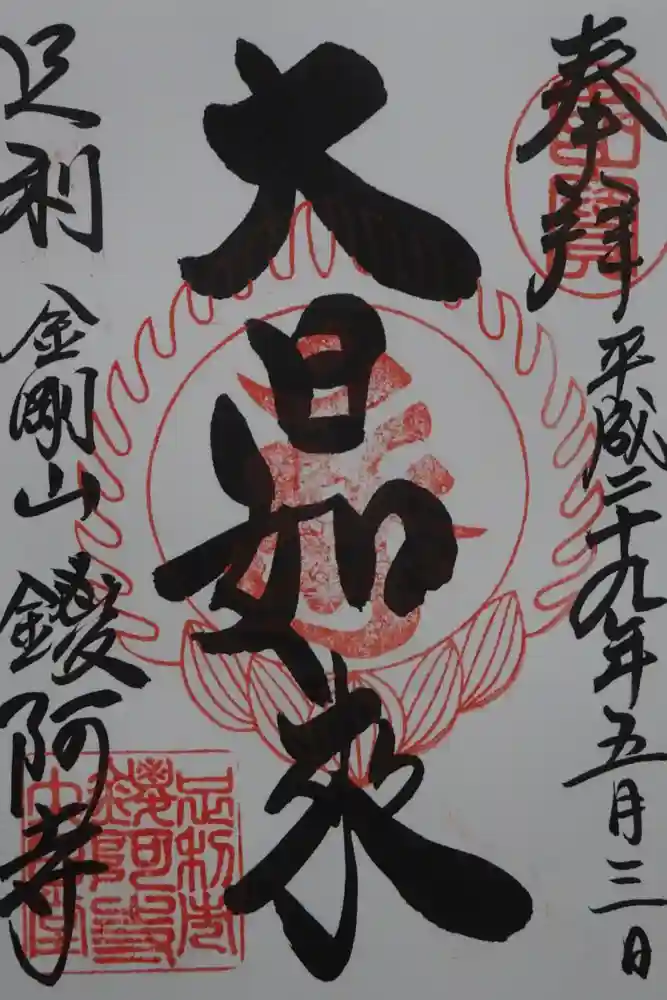 奉拝
平成二十九年五月三日
大日如来
足利
金剛山
鑁阿寺